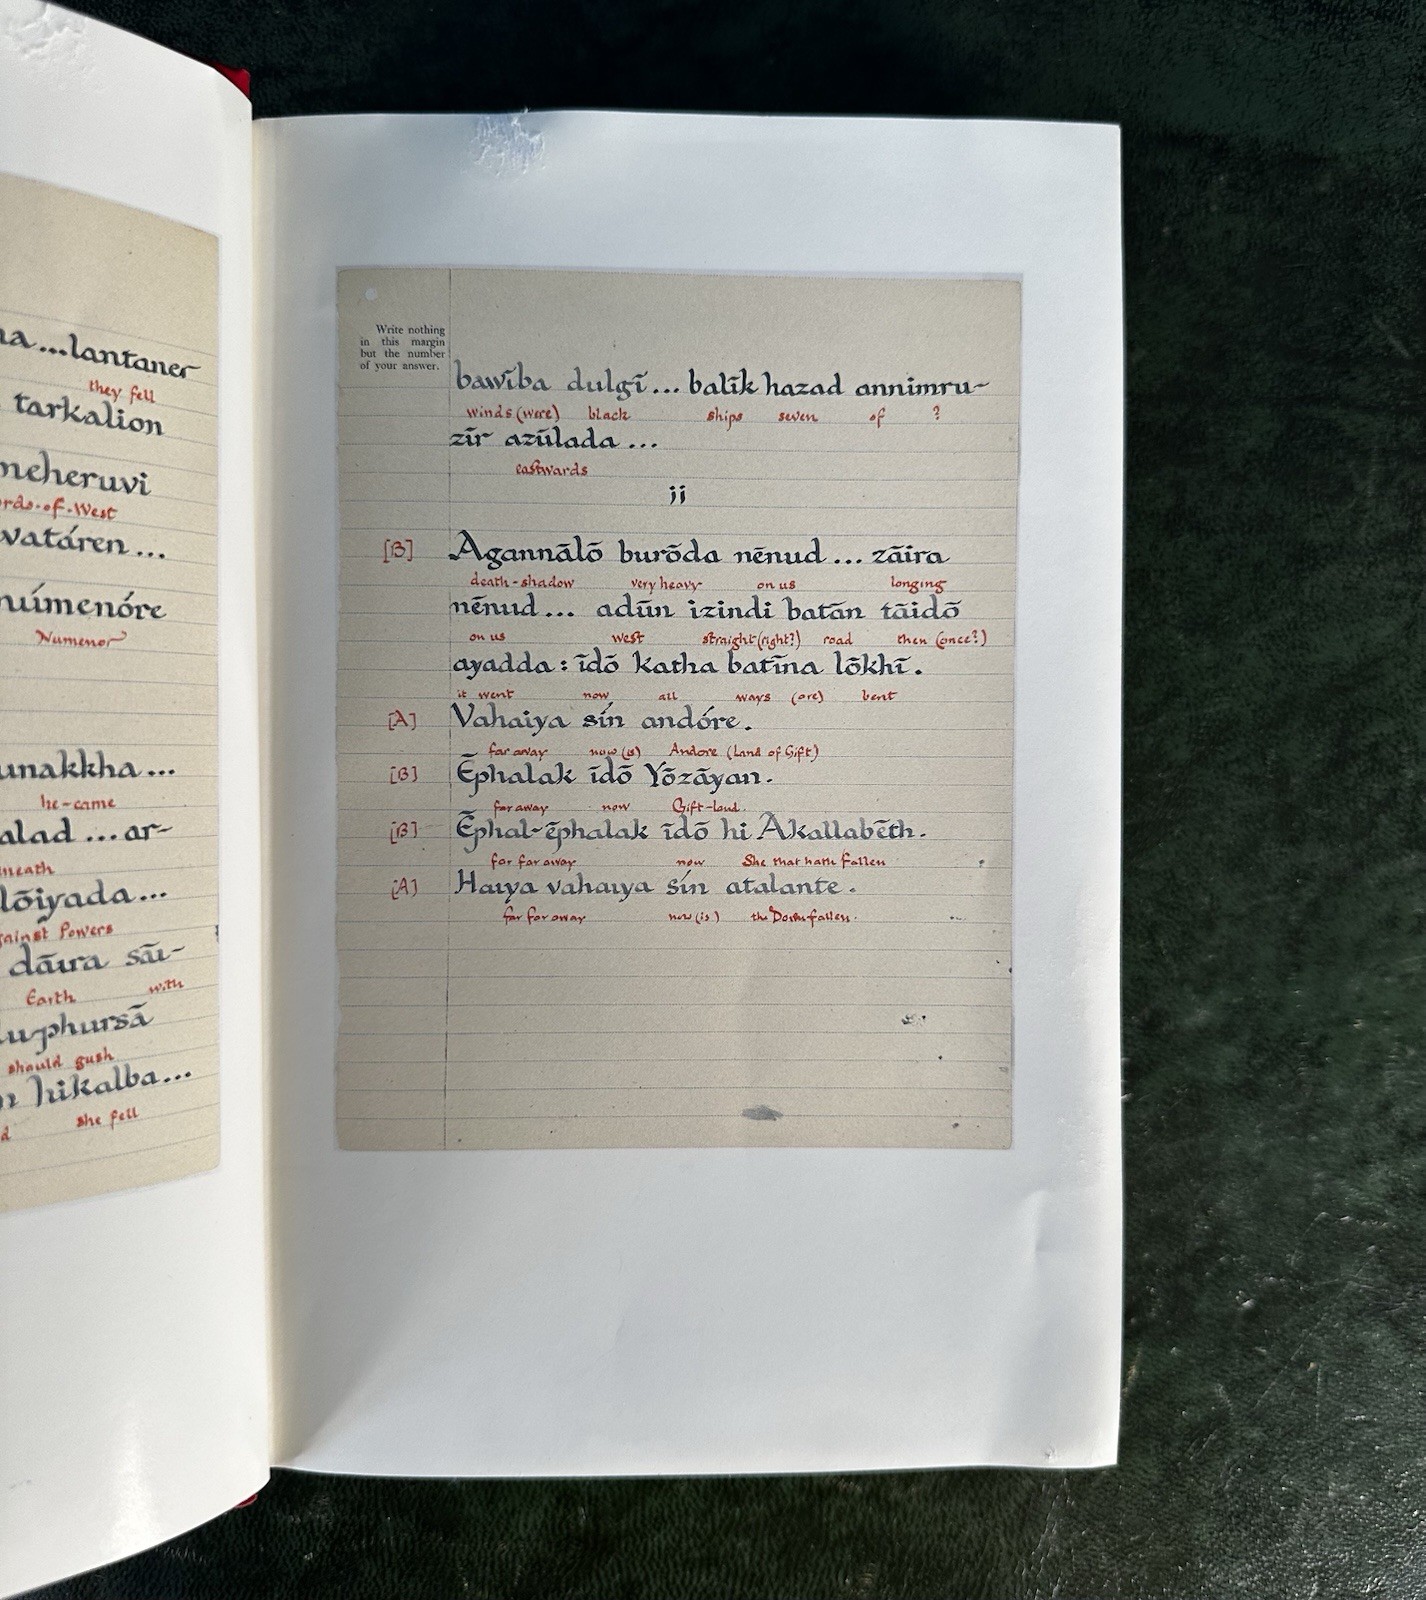 lantaner
they fell
tarkalion
neheruvi
-of-West
vatáren ...
númenóre
Numenor
unakkha ...
he-came
alad ... ar-
neath
lōiyada ...
against Powers
dāira sāi-
Earth with
uphursā
should gush
hikalba ...
she fell
Write nothing
in this margin
but the number
of your answer.
bawība dulgī ... balīk hazad annimru-
winds (were) black ships seven of ?
zīr azūlada ...
eastwards
ii
[B] Agannālō burōda nēnud ... zāira
death-shadow very heavy on us longing
nēnud ... adūn izindi batān tāidō
on us west straight (right?) road then (once?)
ayadda : īdō katha batīna lōkhī.
it went now all ways (are) bent
[A] Vahaiya sín andóre.
far away now (is) Andore (Land of Gift)
[B] Ēphalak īdō Yōzāyan.
far away now Gift-land.
[B] Ēphal-ēphalak īdō hi Akallabēth.
far far away now She that hath fallen
[A] Haiya vahaiya sín atalante.
far far away now (is) the Downfallen.